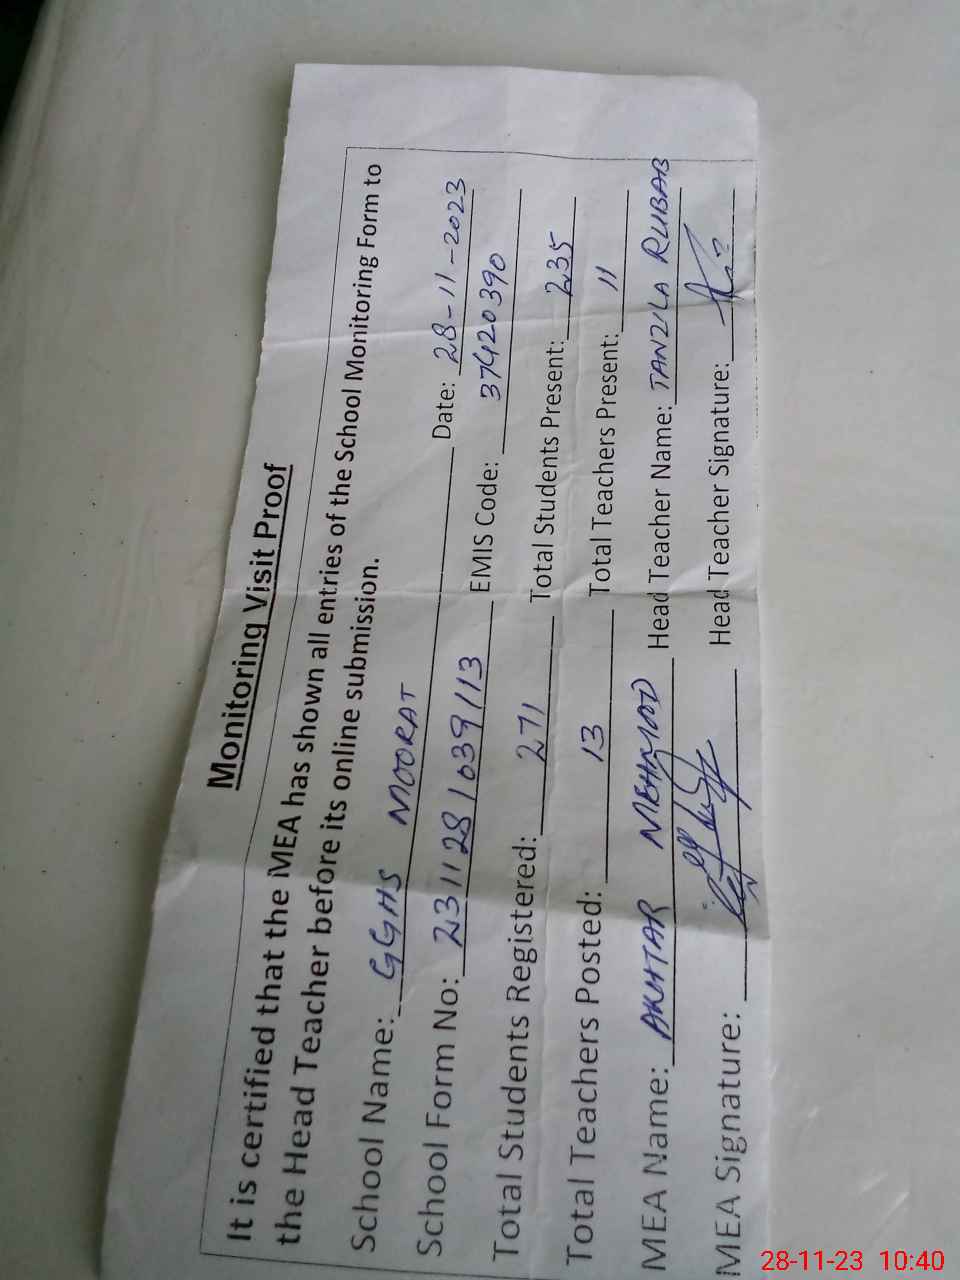 Monitoring Visit Proof
It is certified that the MEA has shown all entries of the School Monitoring Form to
the Head Teacher before its online submission.
School Name: GGHS MOORAT Date: 28-11-2023
School Form No: 2311281639113 EMIS Code: 37420390
Total Students Registered: 271 Total Students Present: 235
Total Teachers Posted: 13 Total Teachers Present: 11
MEA Name: AKHTAR MEHMOOD Head Teacher Name: TANZILA RUBAB
MEA Signature: Head Teacher Signature:
28-11-23 10:40